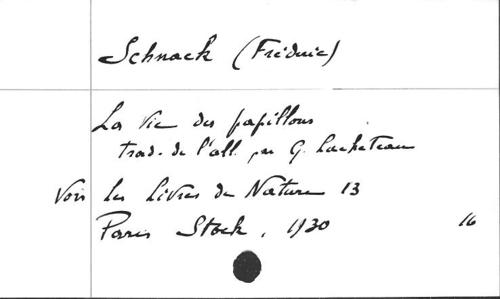 Schnack (Fréderic)
La Vie des papillons
trad. de l'all. par G. Lacheteau
Voir les Livres de Nature 13
Paris Stock, 1930 16